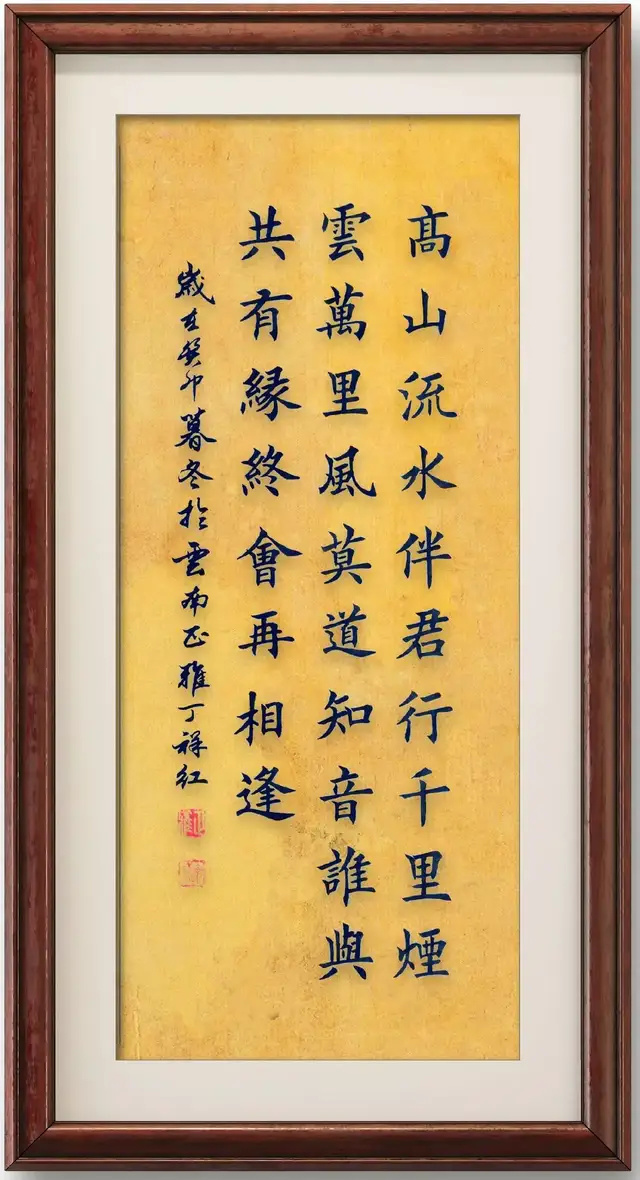 髙山流水伴君行千里煙
雲萬里風莫道知音誰與
共有縁終會再相逢
歲在癸卯暮冬於雲南正雅丁祥紅